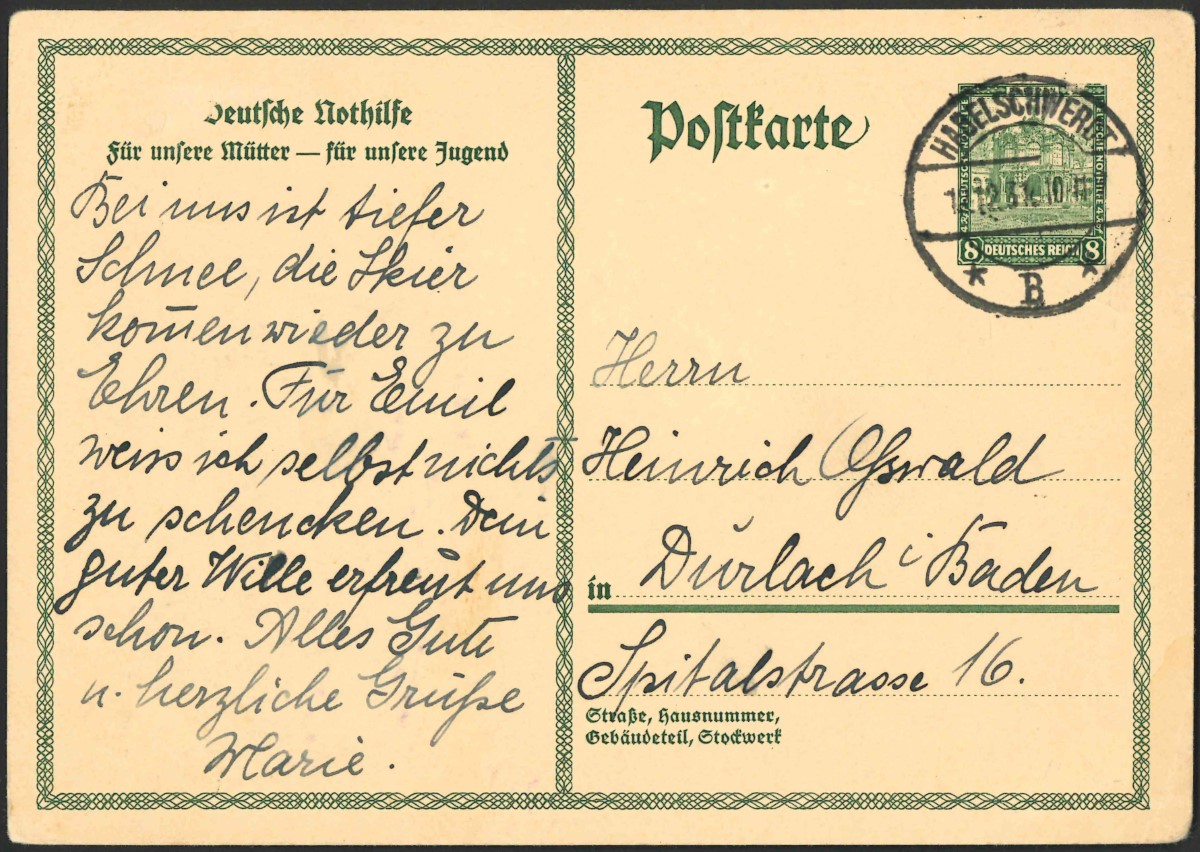 Deutsche Nothilfe
Für unsere Mütter — für unsere Jugend
Bei uns ist tiefer
Schnee, die Skier
kom̅en wieder zu
Ehren. Für Emil
weiss ich selbst nichts
zu schencken. Dein
guter Wille erfreut uns
schon. Alles Gute
u. herzliche Grüße
Marie.
Postkarte
HABELSCHWERDT
B
8 DEUTSCHES REICH 8
Herrn
Heinrich Osswald
in Durlach i Baden
Spitalstrasse 16.
Straße, Hausnummer,
Gebäudeteil, Stockwerk